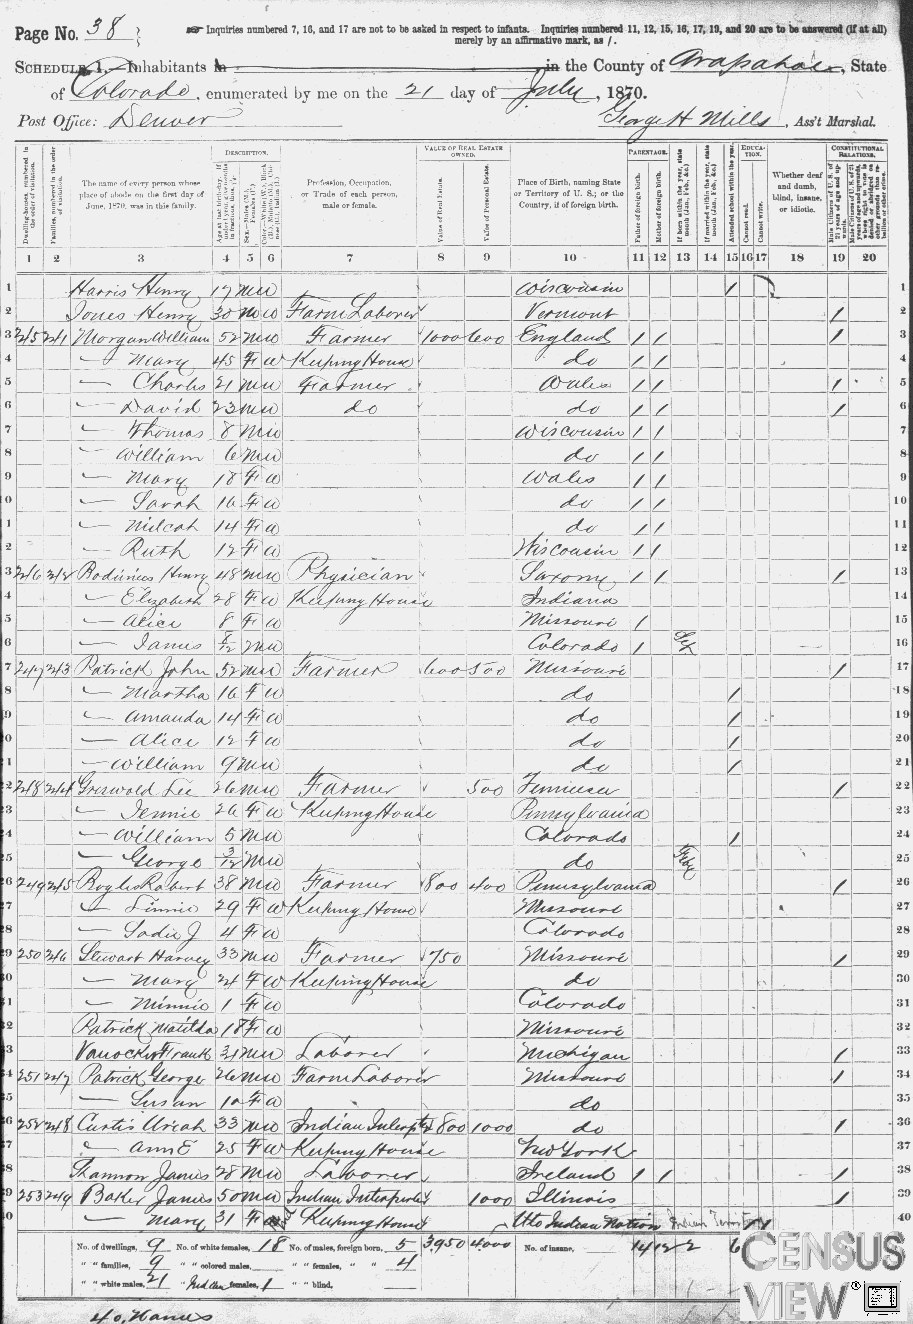 Page No. 38
☞ Inquiries numbered 7, 16, and 17 are not to be asked in respect to infants. Inquiries numbered 11, 12, 15, 16, 17, 19, and 20 are to be answered (if at all)
merely by an affirmative mark, as /.
Schedule 1.—Inhabitants in in the County of Arapahoe, State
of Colorado, enumerated by me on the 21 day of July, 1870.
Post Office: Denver George H Mills, Ass't Marshal.
Dwelling-houses, numbered in the order of visitation.
Families, numbered in the order of visitation.
The name of every person whose place of abode on the first day of June, 1870, was in this family.
DESCRIPTION.
Profession, Occupation, or Trade of each person, male or female.
VALUE OF REAL ESTATE OWNED.
Value of Real Estate.
Value of Personal Estate.
Place of Birth, naming State or Territory of U. S.; or the Country, if of foreign birth.
PARENTAGE.
Father of foreign birth.
Mother of foreign birth.
If born within the year, state month (Jan., Feb., &c.)
If married within the year, state month (Jan., Feb., &c.)
Attended school within the year.
EDUCATION.
Cannot read.
Cannot write.
Whether deaf and dumb, blind, insane, or idiotic.
CONSTITUTIONAL RELATIONS.
1 2 3 4 5 6 7 8 9 10 11 12 13 14 15 16 17 18 19 20
1 Harris Henry 17 M W Wisconsin / 1
2 Jones Henry 30 M W Farm Laborer Vermont / 2
3 245 241 Morgan William 52 M W Farmer 1000 600 England / / / 3
4 — Mary 45 F W Keeping House do / / 4
5 — Charles 21 M W Farmer Wales / / / 5
6 — David 23 M W do do / / / 6
7 — Thomas 8 M W Wisconsin / / 7
8 — William 6 M W do / / 8
9 — Mary 18 F W Wales / / 9
10 — Sarah 16 F W do / / 10
11 — Milcah 14 F W do / / 11
12 — Ruth 12 F W Wisconsin / / 12
13 246 242 Henry 48 M W Physician Saxony / / / 13
14 — Elizabeth 28 F W Keeping House Indiana 14
15 — Alice 8 F W Missouri / 15
16 — James 8/12 M W Colorado / 16
17 247 243 Patrick John 52 M W Farmer 600 500 Missouri / 17
18 — Martha 16 F W do / 18
19 — Amanda 14 F W do / 19
20 — Alice 12 F W do / 20
21 — William 9 M W do / 21
22 248 244 Griswold Lee 26 M W Farmer 500 Tennessee / 22
23 — Jennie 26 F W Keeping House Pennsylvania 23
24 — William 5 M W Colorado / 24
25 — George 3/12 M W do Feby 25
26 249 245 Robert 38 M W Farmer 800 400 Pennsylvania / 26
27 — Linnie 29 F W Keeping House Missouri 27
28 — Sadie J 4 F W Colorado 28
29 250 246 Stewart Harvey 33 M W Farmer 750 Missouri / 29
30 — Mary 24 F W Keeping House do 30
31 — Minnie 1 F W Colorado 31
32 Patrick Matilda 18 F W Missouri 32
33 Frank 31 M W Laborer Michigan / 33
34 251 247 Patrick George 26 M W Farm Laborer Missouri / 34
35 — Susan F W do 35
36 252 248 Curtis Uriah 33 M W Indian Interpter 800 1000 do / 36
37 — Ann E 25 F W Keeping House New York 37
38 Shannon James 28 M W Laborer Ireland / / / 38
39 253 249 Baker James 50 M W Indian Interpreter 1000 Illinois / 39
40 — Mary 31 F Ind Keeping House Ute Indian Nation Indian Territory / / 40
No. of dwellings, 9 No. of white females, 18 No. of males, foreign born, 5 3950 4000 No. of insane, 14 12 2 6
" " families, 9 " " colored males, " " females, " " 4
" " white males, 21 " " Indian females, 1 " " blind.
40 Names
CENSUS
VIEW®